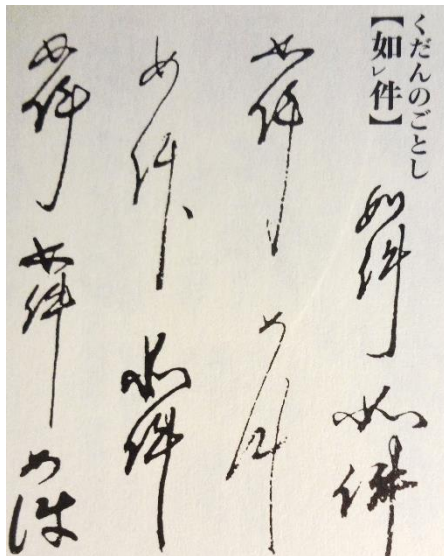 くだんのごとし
【如レ件】
如件
如件
如件
如件
如件
如件
如件
如件
如件